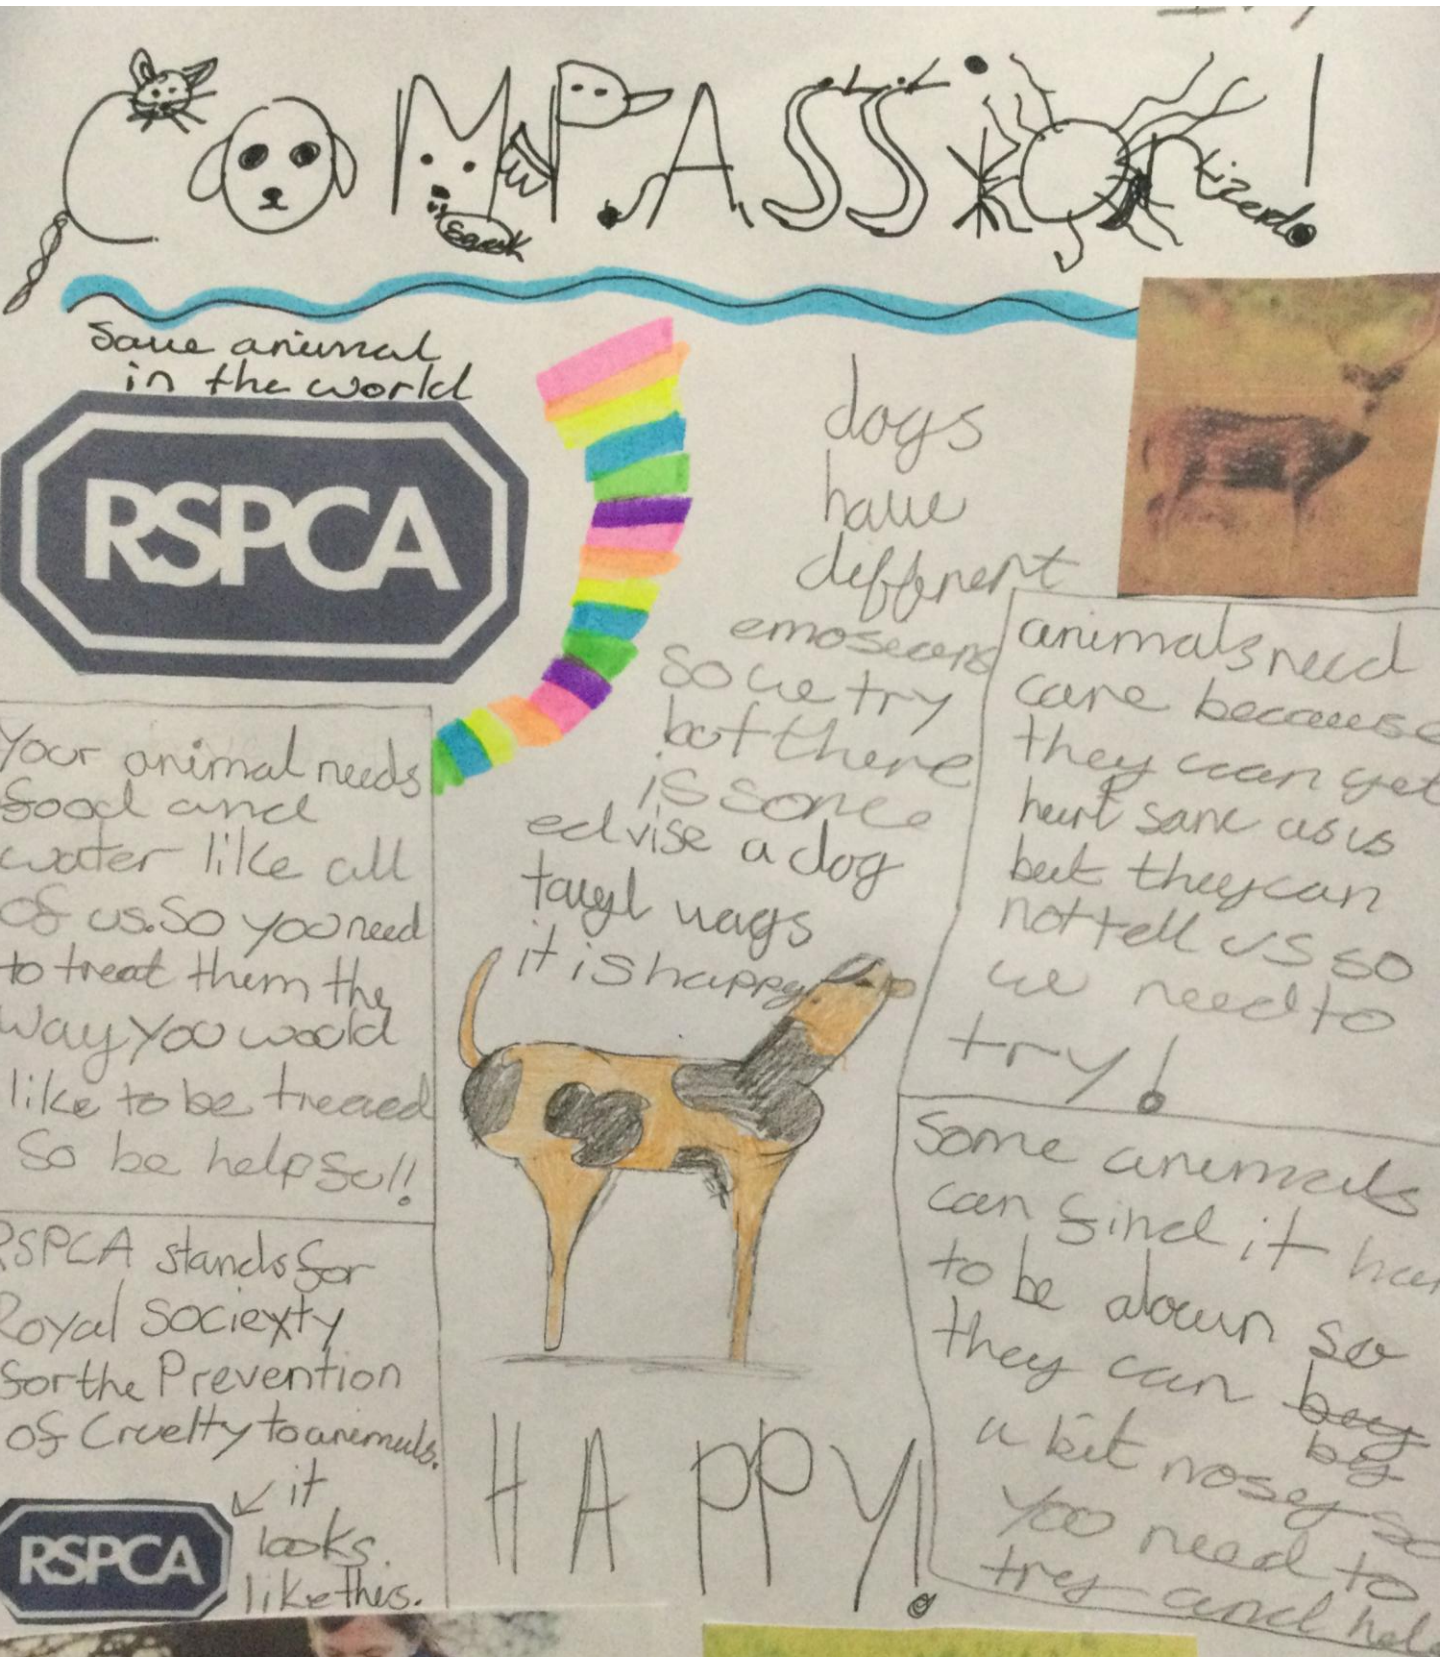 COMPASSION!
squek
Save animal
in the world
RSPCA
dogs
have
different
emoseons
so we try
but there
is some
edvise a dog
tayl wags
it is happy
animals need
care because
they can get
hurt same as us
but they can
not tell us so
we need to
try!
Your animal needs
food and
water like all
of us. So you need
to treat them the
way you would
like to be treaed
So be helpful!
RSPCA stands for
Royal Sociexty
for the Prevention
of Cruelty to animals.
RSPCA
it
looks
like this.
HAPPY!
Some animals
can find it
to be alown so
they can
by
a bit nosey so
you need to
trey and help